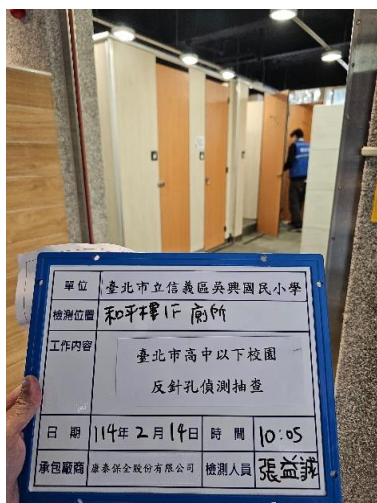 單位 臺北市立信義區吳興國民小學
檢測位置 和平樓1F 廁所
工作內容 臺北市高中以下校園
反針孔偵測抽查
日期 114年2月14日 時間 10:05
承包廠商 康泰保全股份有限公司 檢測人員 張益誠